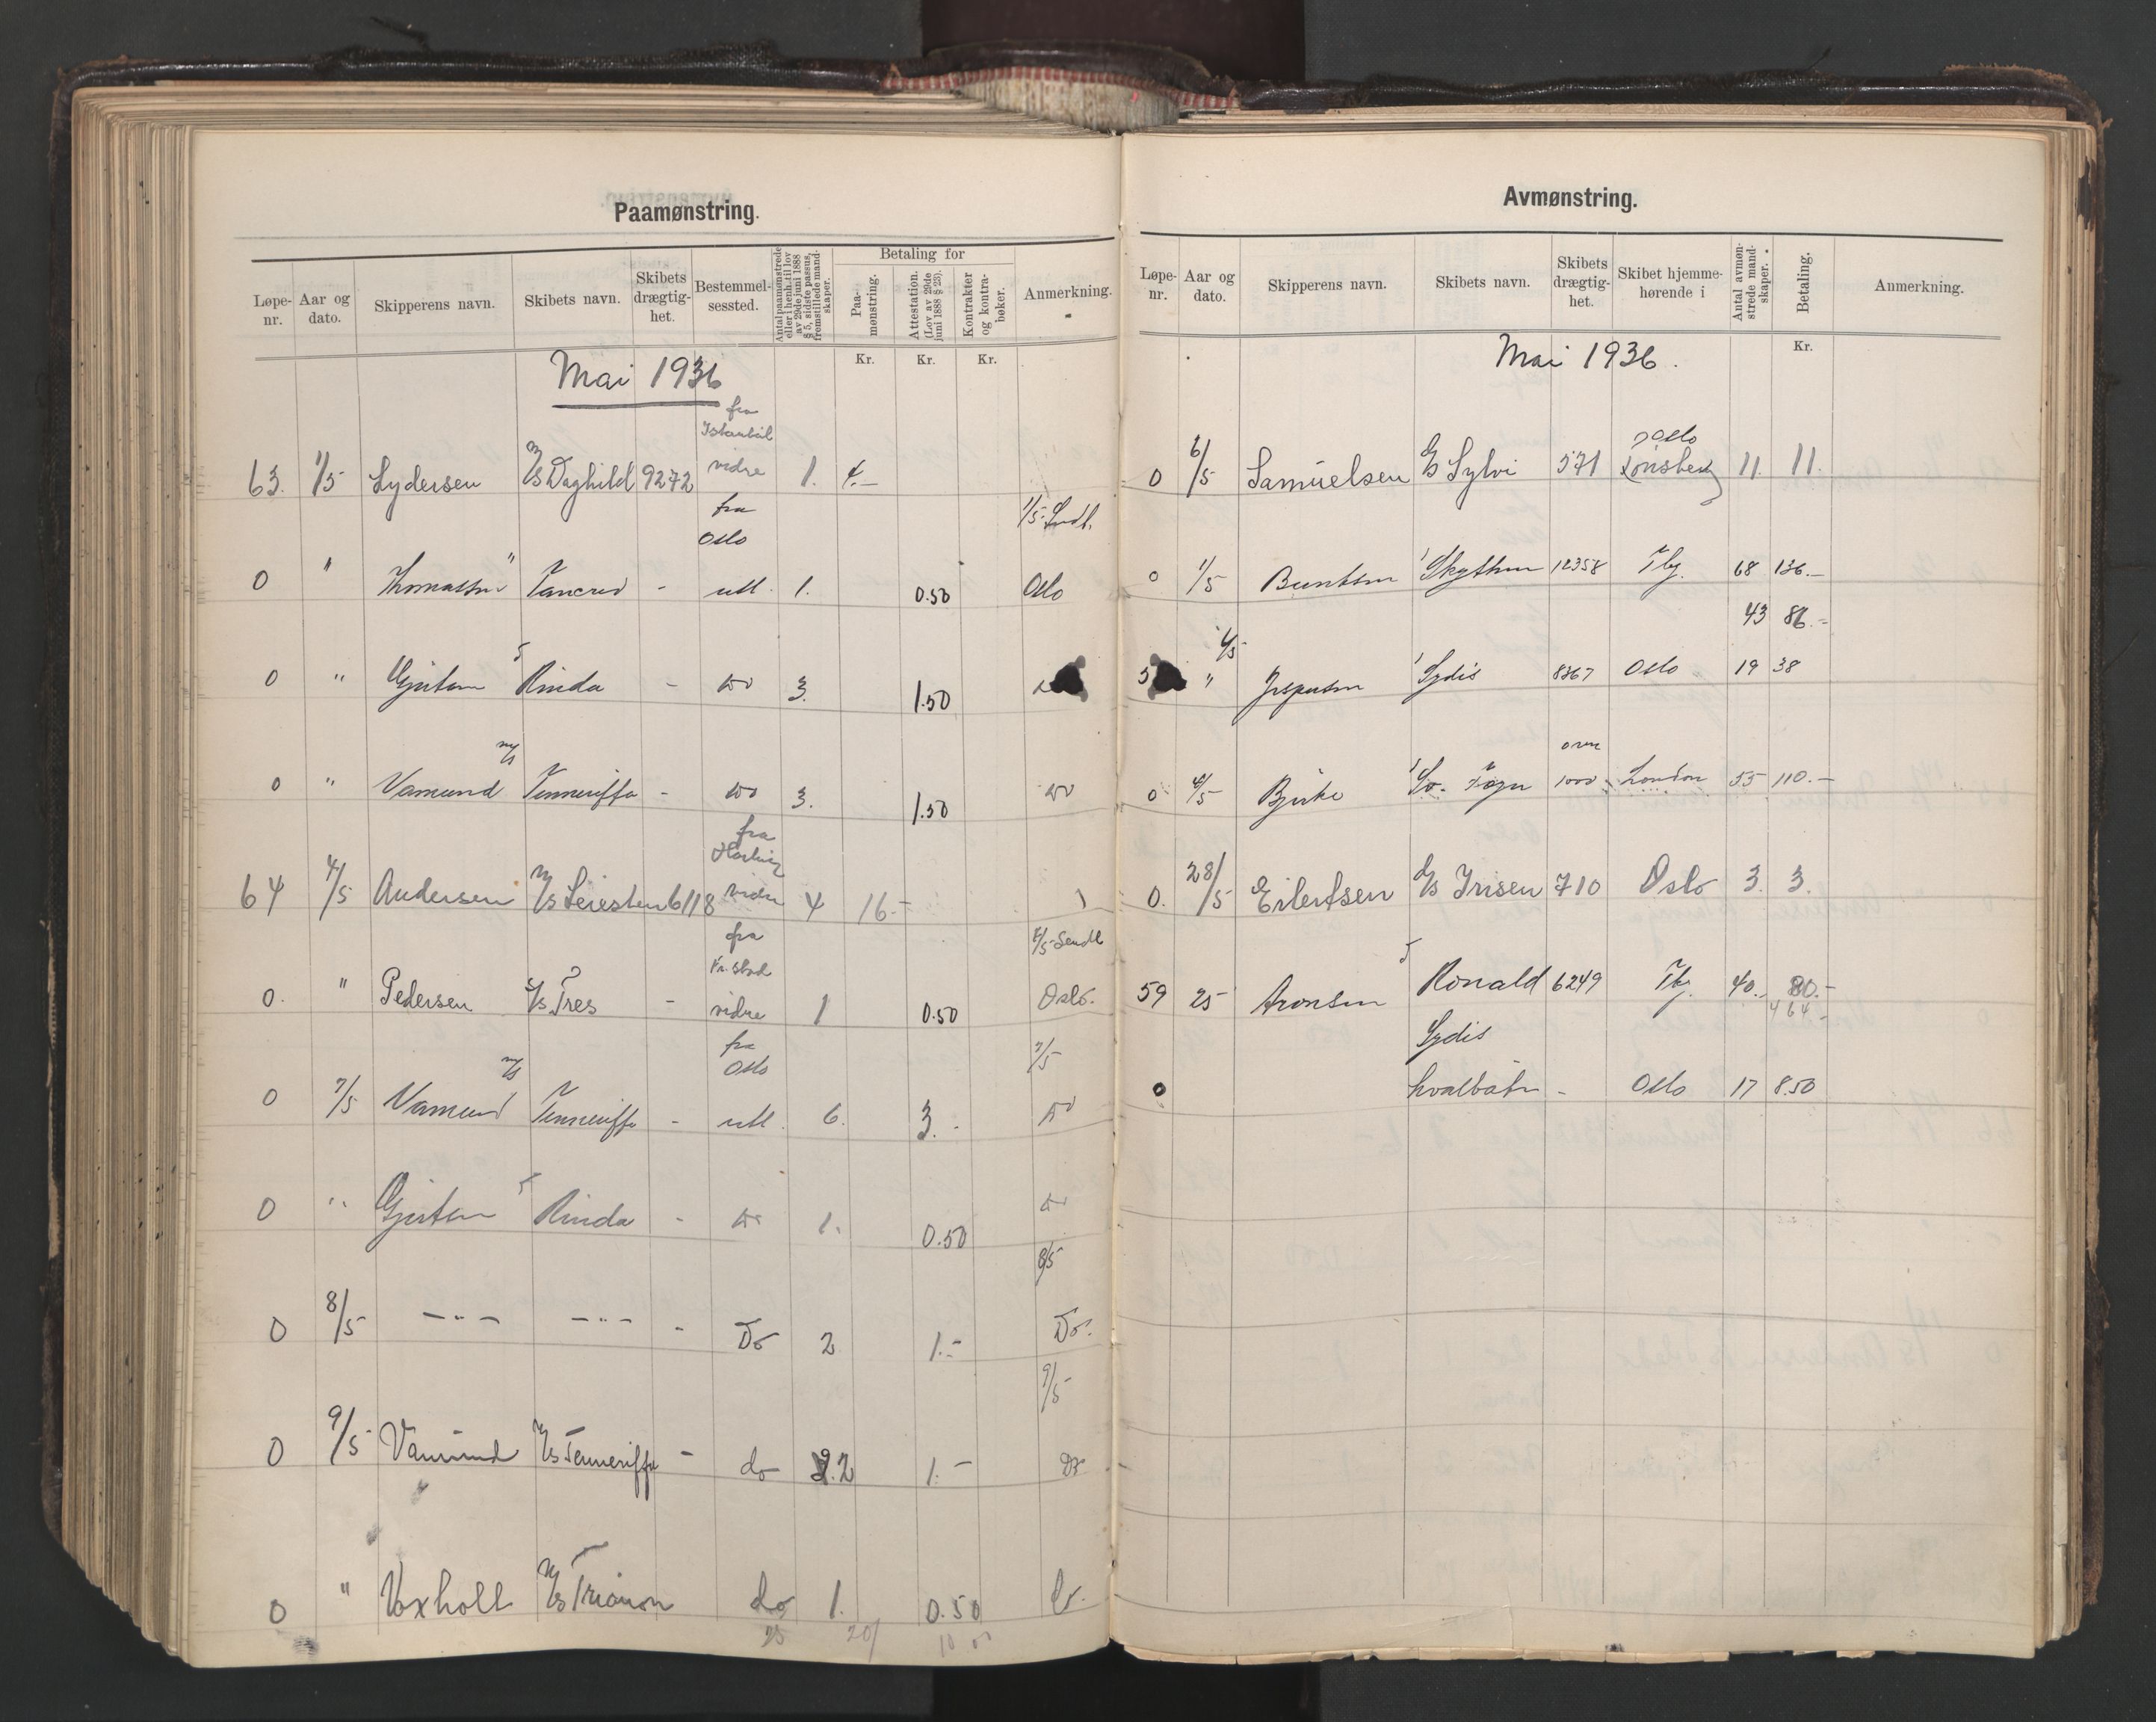 Paamønstring.
Løpe-nr. Aar og dato. Skipperens navn. Skibets navn. Skibets drægtig-het. Bestemmel-sessted. Antal paamønstrede eller i henh. til lov av 29de juni 1888 § 5, sidste passus, fremstillede mand-skaper. Betaling for Paa-mønstring. Attestation. (Lov av 29de juni 1888 § 23). Kontrakter og kontra-bøker. Anmerkning.
Kr. Kr. Kr.
Mai 1936
fra
Istanbul
63. 1/5 Lydersen M/s Daghild 9272 vidre 1. 4.—
fra 1/5 Sendt.
Oslo
0 " Thomassen " Tancred - utl. 1. 0.50 Oslo
0 " Gjertsen Rinda - do 3. 1.50
m/s
0 " Vamund Tenneriffa - do 3. 1.50 do
fra
64 4/5 Andersen M/s Leiesten 6118 vidre 4 16.-
fra 4/5 Sendt
Fr.stad
0. " Pedersen S/s Tres - vidre 1 0.50 Oslo.
fra 7/5
Oslo
m/s
0 7/5 Vamund Tenneriffa - utl. 6. 3.- do
0 " Gjertsen Rinda - do 1. 0.50 do
8/5
0 8/5 — " — — " — - Do 2 1.- Do.
9/5
0 9/5 Vamund M/s Tenneriffa - do 2 1.- Do
0 " Voxholt M/s Trianon do 1. 0.50 do.
25 20/ 10.00
Avmønstring.
Løpe-nr. Aar og dato. Skipperens navn. Skibets navn. Skibets drægtig-het. Skibet hjemme-hørende i Antal avmøn-strede mand-skaper. Betaling. Anmerkning.
Kr.
Mai 1936.
Oslo
0 6/5 Samuelsen D/s Sylvi 571 Tønsberg 11. 11.
0 1/5 Berntsen Skytteren 12358 Tbg. 68 136.—
43 86.-
4/5
" Jespersen Sydis 8367 Oslo 19 38
over
0 4/5 Bjerke So. 1000 London 55 110.—
0. 28/5 Eilertsen D/s Irisen 710 Oslo 3. 3.
59 25 Aronsen Ronald 6249 Tbg. 40. 80.-
464.-
Sydis
0 hvalbåter - Oslo 17 8.50